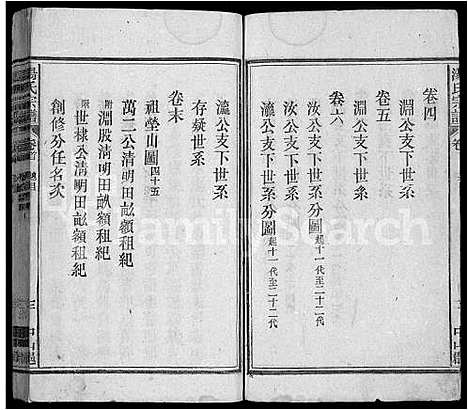 湯氏宗譜
卷四
淵公支下世系
卷五
淵公支下世系分圖 起十一代至二十二代
汝公支下世系
卷六
汝公支下世系分圖 起十一代至二十二代
瀛公支下世系
瀛公支下世系
存疑世系
卷末
祖塋山圖 四十五
萬三公清明田畝額租紀
附 淵殷清明田畝額租紀
附 世棣公清明田畝額租紀
創修分任名次
湯氏宗譜
卷首
中山
FamilySearch